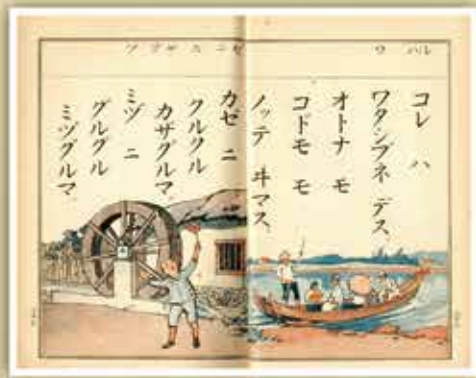 コレ ハ
ワタシブネ デス、
オトナ モ
コドモ モ
ノッテ ヰマス、
カゼ ニ
クルクル
カザグルマ、
ミヅ ニ
グルグル
ミヅグルマ、